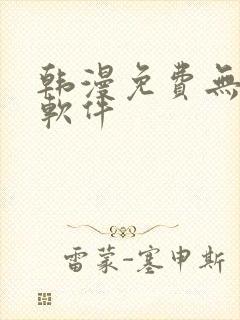 韩漫免費無
軟件
雷蒙-塞申斯